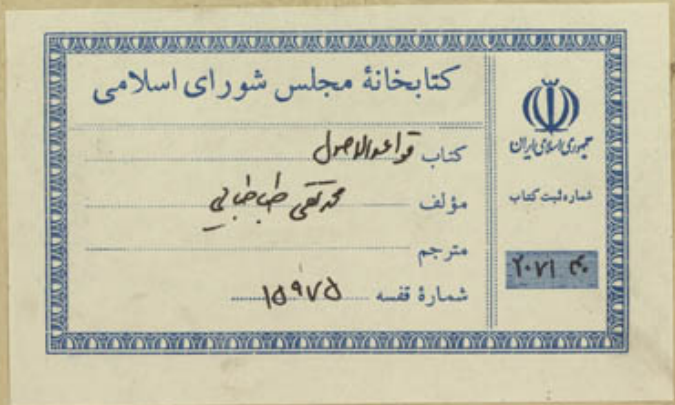 کتابخانهٔ مجلس شورای اسلامی
کتاب قواعد الاصول
مؤلف محمد تقی طباطبایی
مترجم
شمارهٔ قفسه ۱۵۹۷۵
جمهوری اسلامی ایران
شماره ثبت کتاب
۲۰۷۱